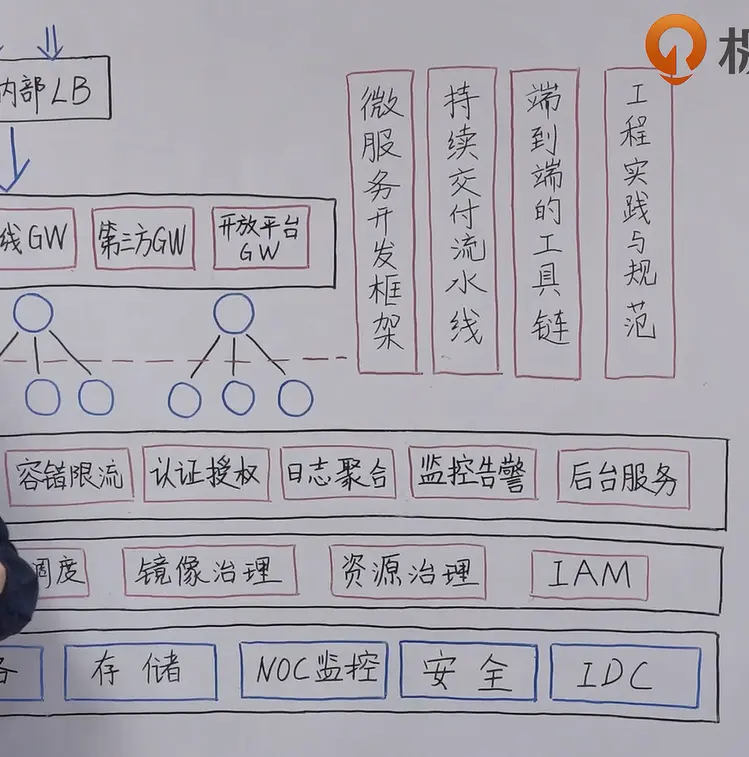 内部LB
线GW
第三方GW
开放平台
GW
微服务开发框架
持续交付流水线
端到端的工具链
工程实践与规范
容错限流
认证授权
日志聚合
监控告警
后台服务
调度
镜像治理
资源治理
IAM
存储
NOC监控
安全
IDC